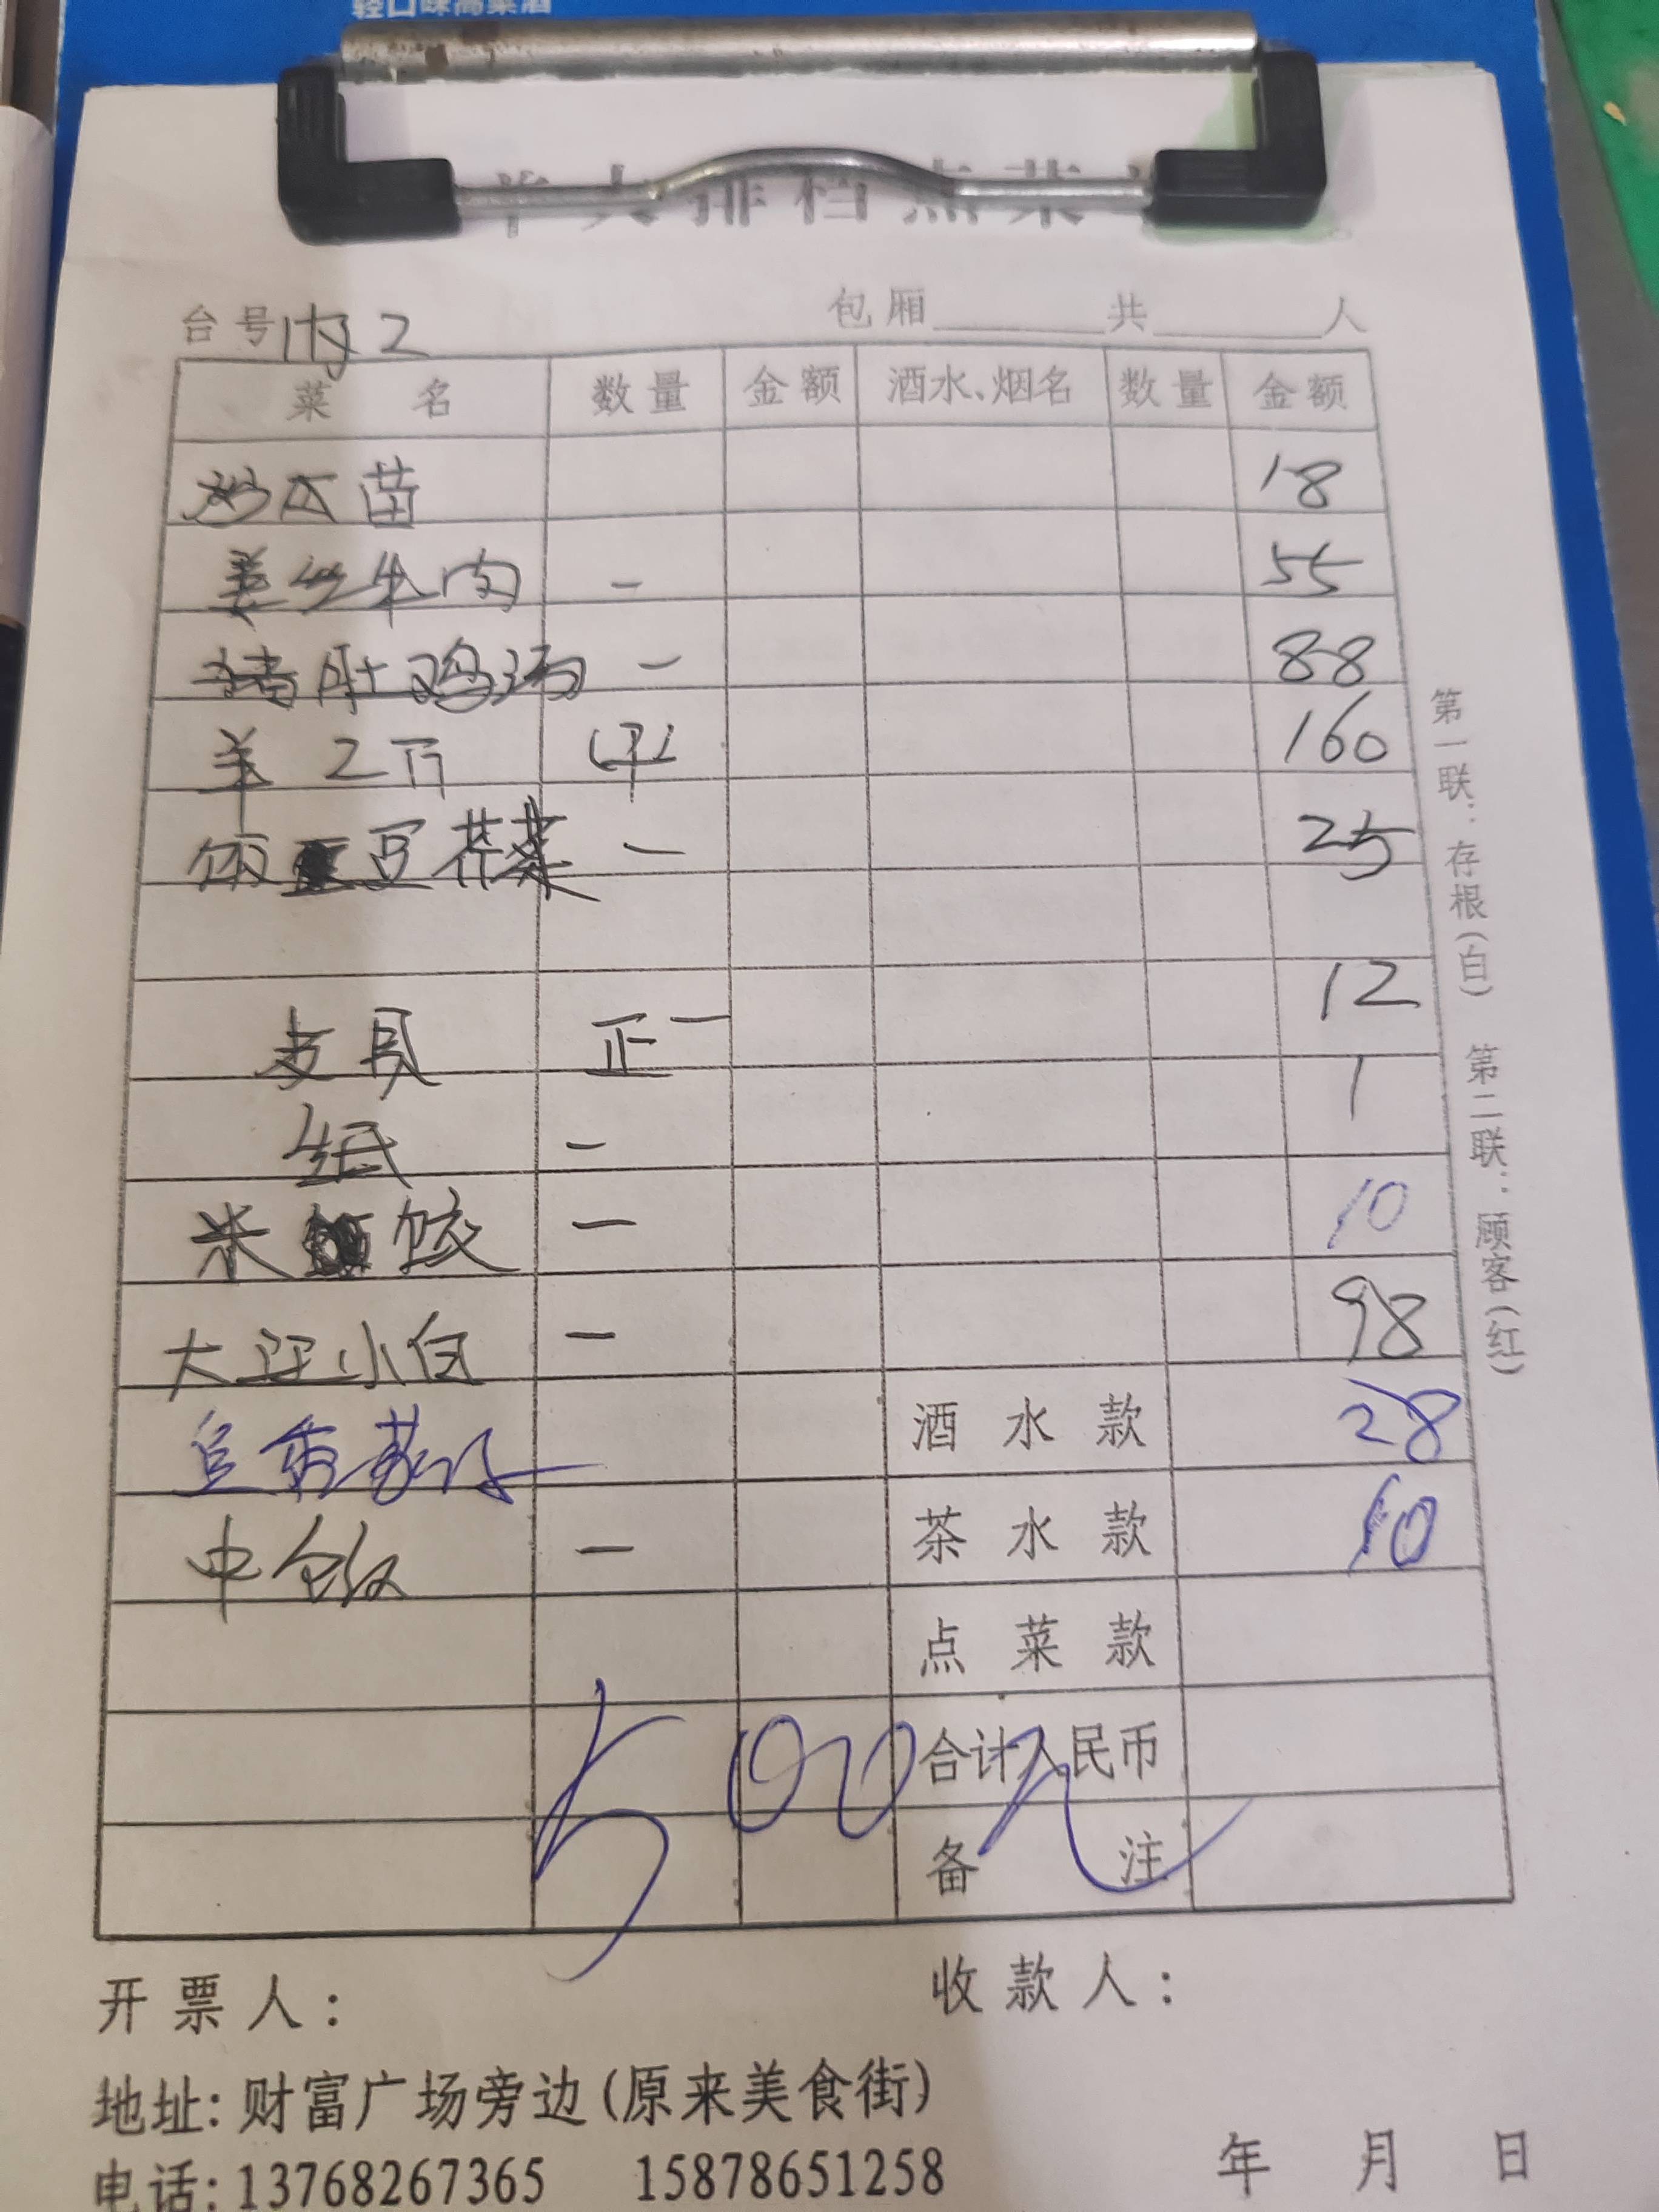 大排档点菜
台号 内2 包厢 共 人
菜名 数量 金额 酒水、烟名 数量 金额
炒瓜苗 18
姜丝牛肉 一 55
猪肚鸡汤 一 88
羊 2斤 160
豆芥菜 一 25
12
正一
纸 一 1
米饺 一 10
大江小白 一 98
酒水款 28
中饭 一 茶水款 10
点菜款
合计人民币
500元
备注
第一联：存根(白) 第二联：顾客(红)
开票人： 收款人：
地址：财富广场旁边(原来美食街)
电话：13768267365 15878651258 年 月 日